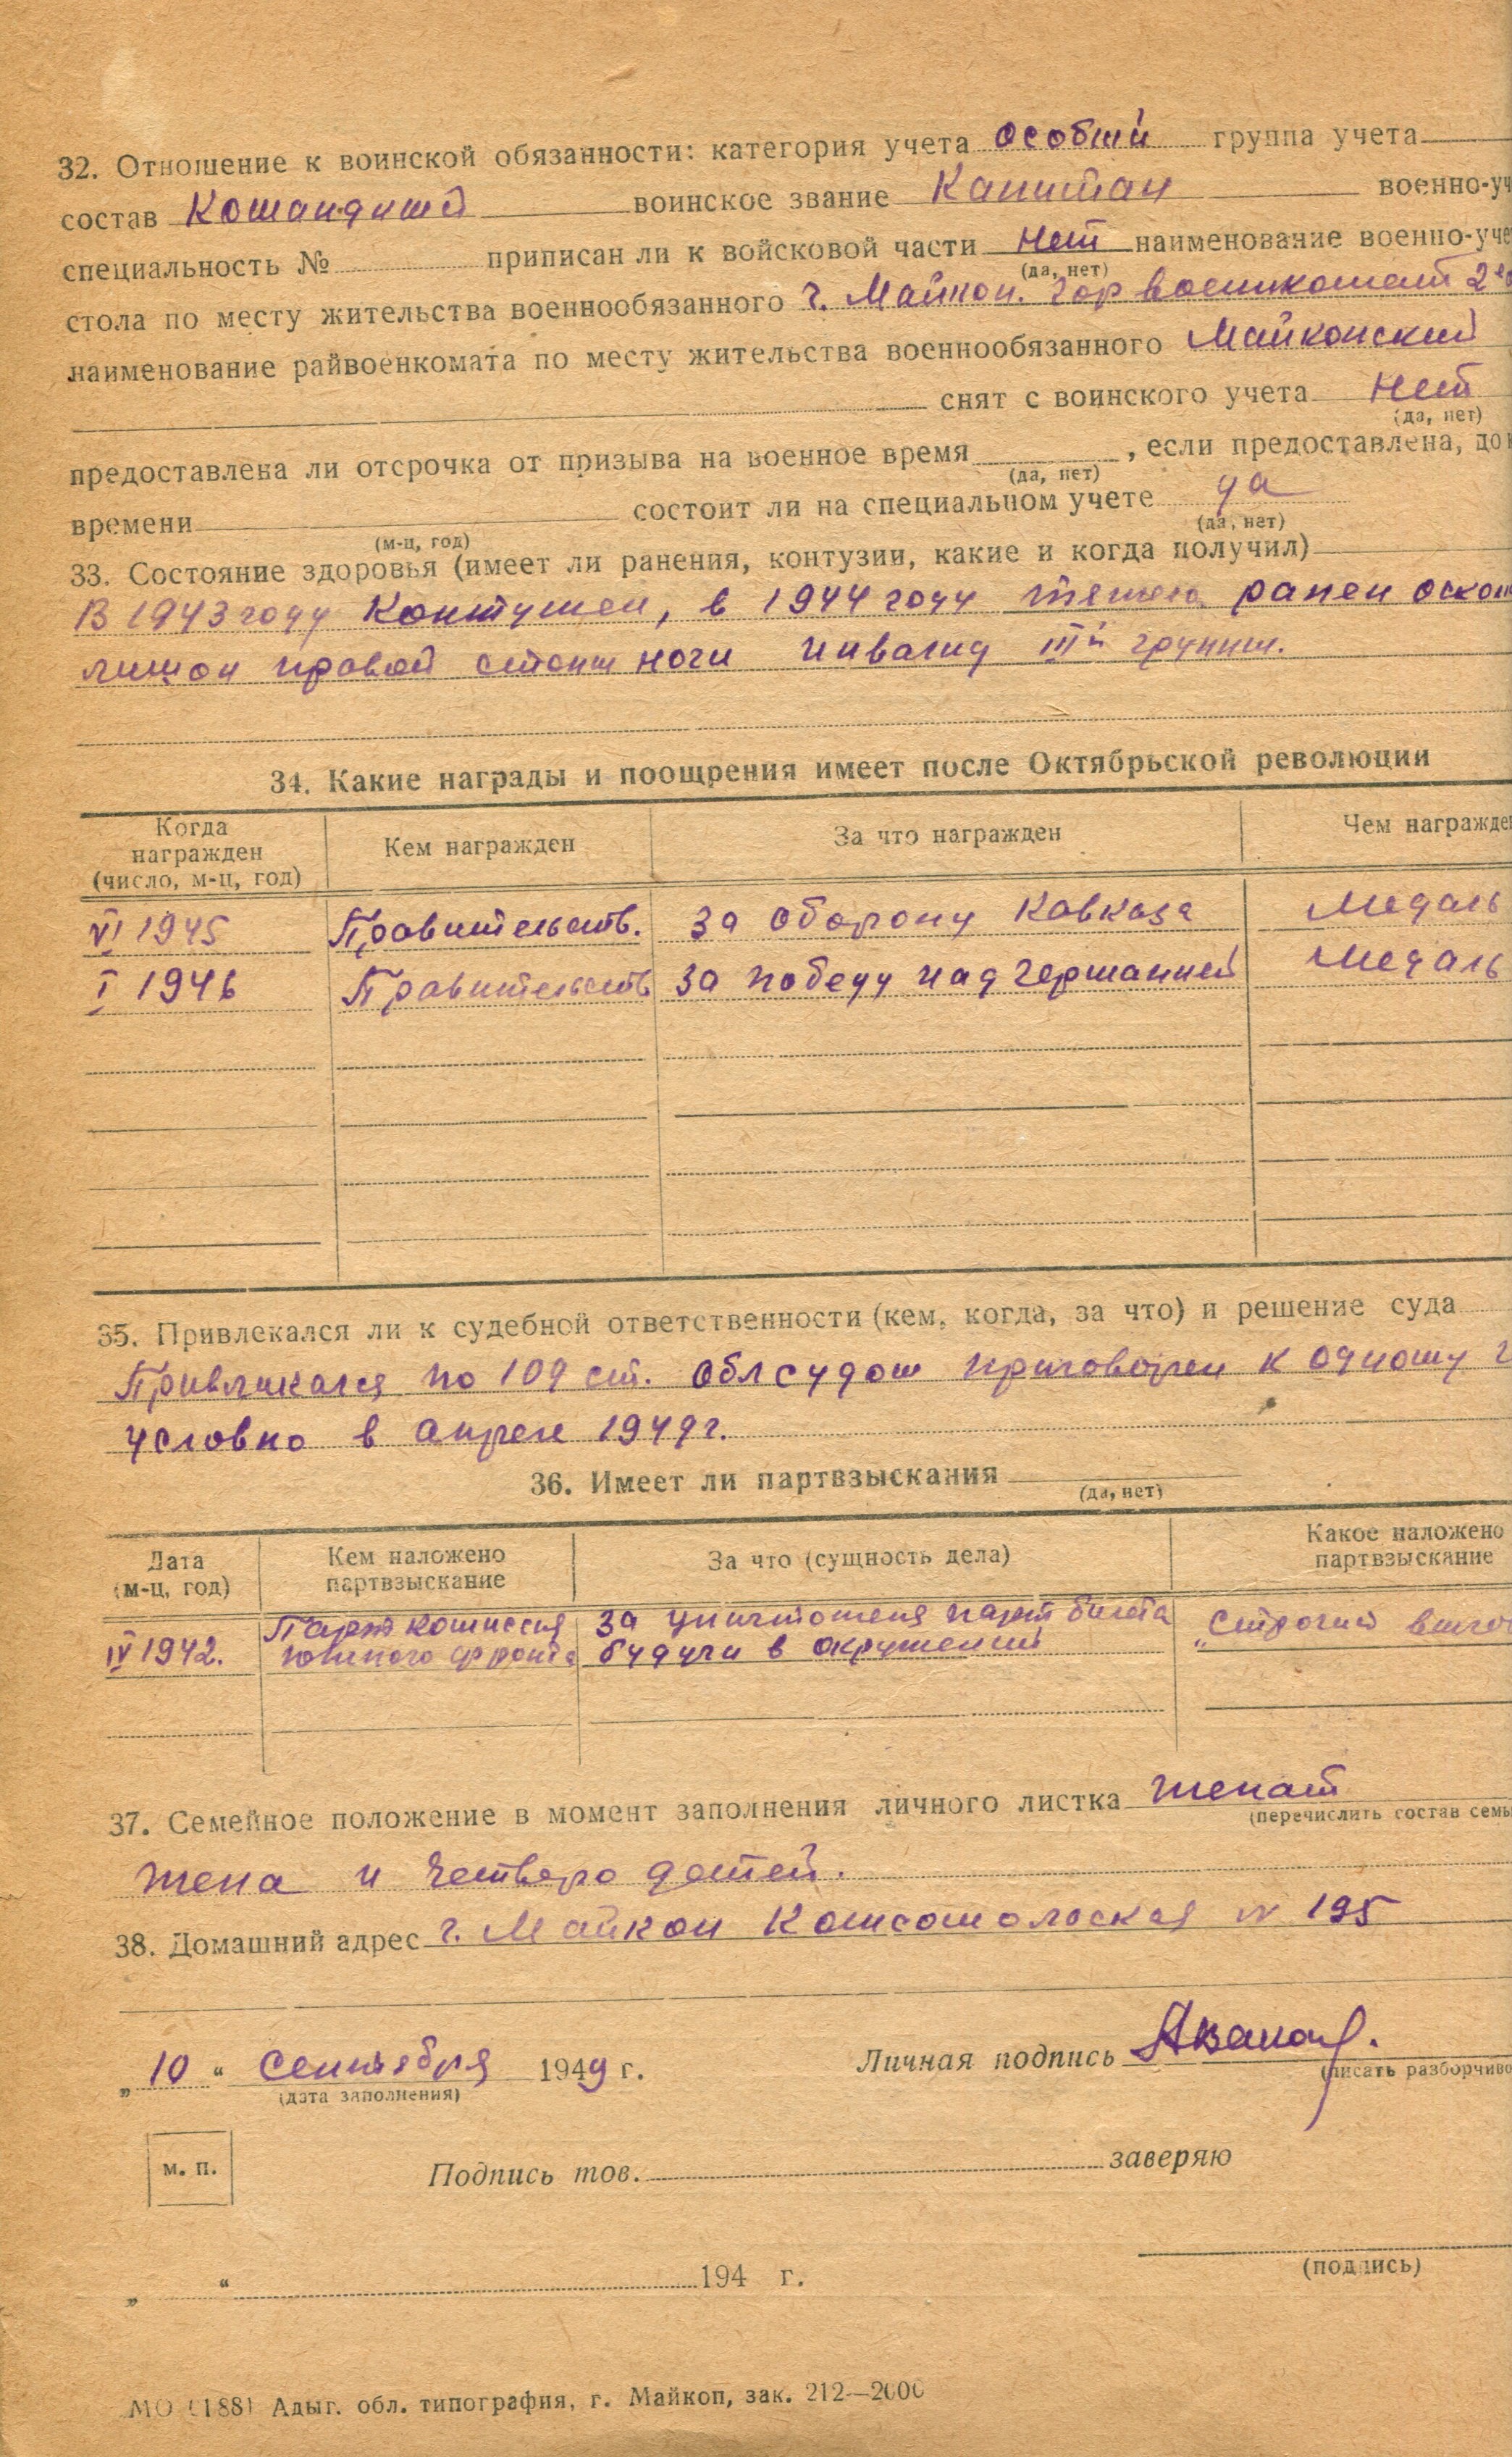 32. Отношение к воинской обязанности: категория учета особый группа учета
состав Командный воинское звание Капитан военно-уч
специальность № приписан ли к войсковой части нет наименование военно-уче
(да, нет)
стола по месту жительства военнообязанного г. Майкоп. Гор военкомат 2
наименование райвоенкомата по месту жительства военнообязанного Майкопский
снят с воинского учета нет
(да, нет)
предоставлена ли отсрочка от призыва на военное время , если предоставлена, до к
(да, нет)
времени состоит ли на специальном учете да
(м-ц, год) (да, нет)
33. Состояние здоровья (имеет ли ранения, контузии, какие и когда получил)
В 1943 году Контужен, в 1944 году тяжело ранен с
правой ноги инвалид IIIй группы.
34. Какие награды и поощрения имеет после Октябрьской революции
Когда награжден (число, м-ц, год) Кем награжден За что награжден Чем награжде
VI 1945 Правительств. За оборону Кавказа Медаль
I 1946 Правительств За победу над Германией Медаль
35. Привлекался ли к судебной ответственности (кем, когда, за что) и решение суда
Привликался по 109 ст. Облсудом приговорен к одному г
условно в апреле 1949 г.
36. Имеет ли партвзыскания
(да, нет)
Дата (м-ц, год) Кем наложено партвзыскание За что (сущность дела) Какое наложено партвзыскание
IV 1942. Парт комиссия южного фронта За уничтоженя парт билета будучи в окружении „Строгий выго
37. Семейное положение в момент заполнения личного листка женат
(перечислить состав семь
жена и четверо детей.
38. Домашний адрес г. Майкоп Комсомолоская № 195
„10“ Сентября 1949 г. Личная подпись
(дата заполнения) (писать разборчиво
м. п.
Подпись тов. заверяю
„ “ 194 г.
(подпись)
МО (188) Адыг. обл. типография, г. Майкоп, зак. 212—2000